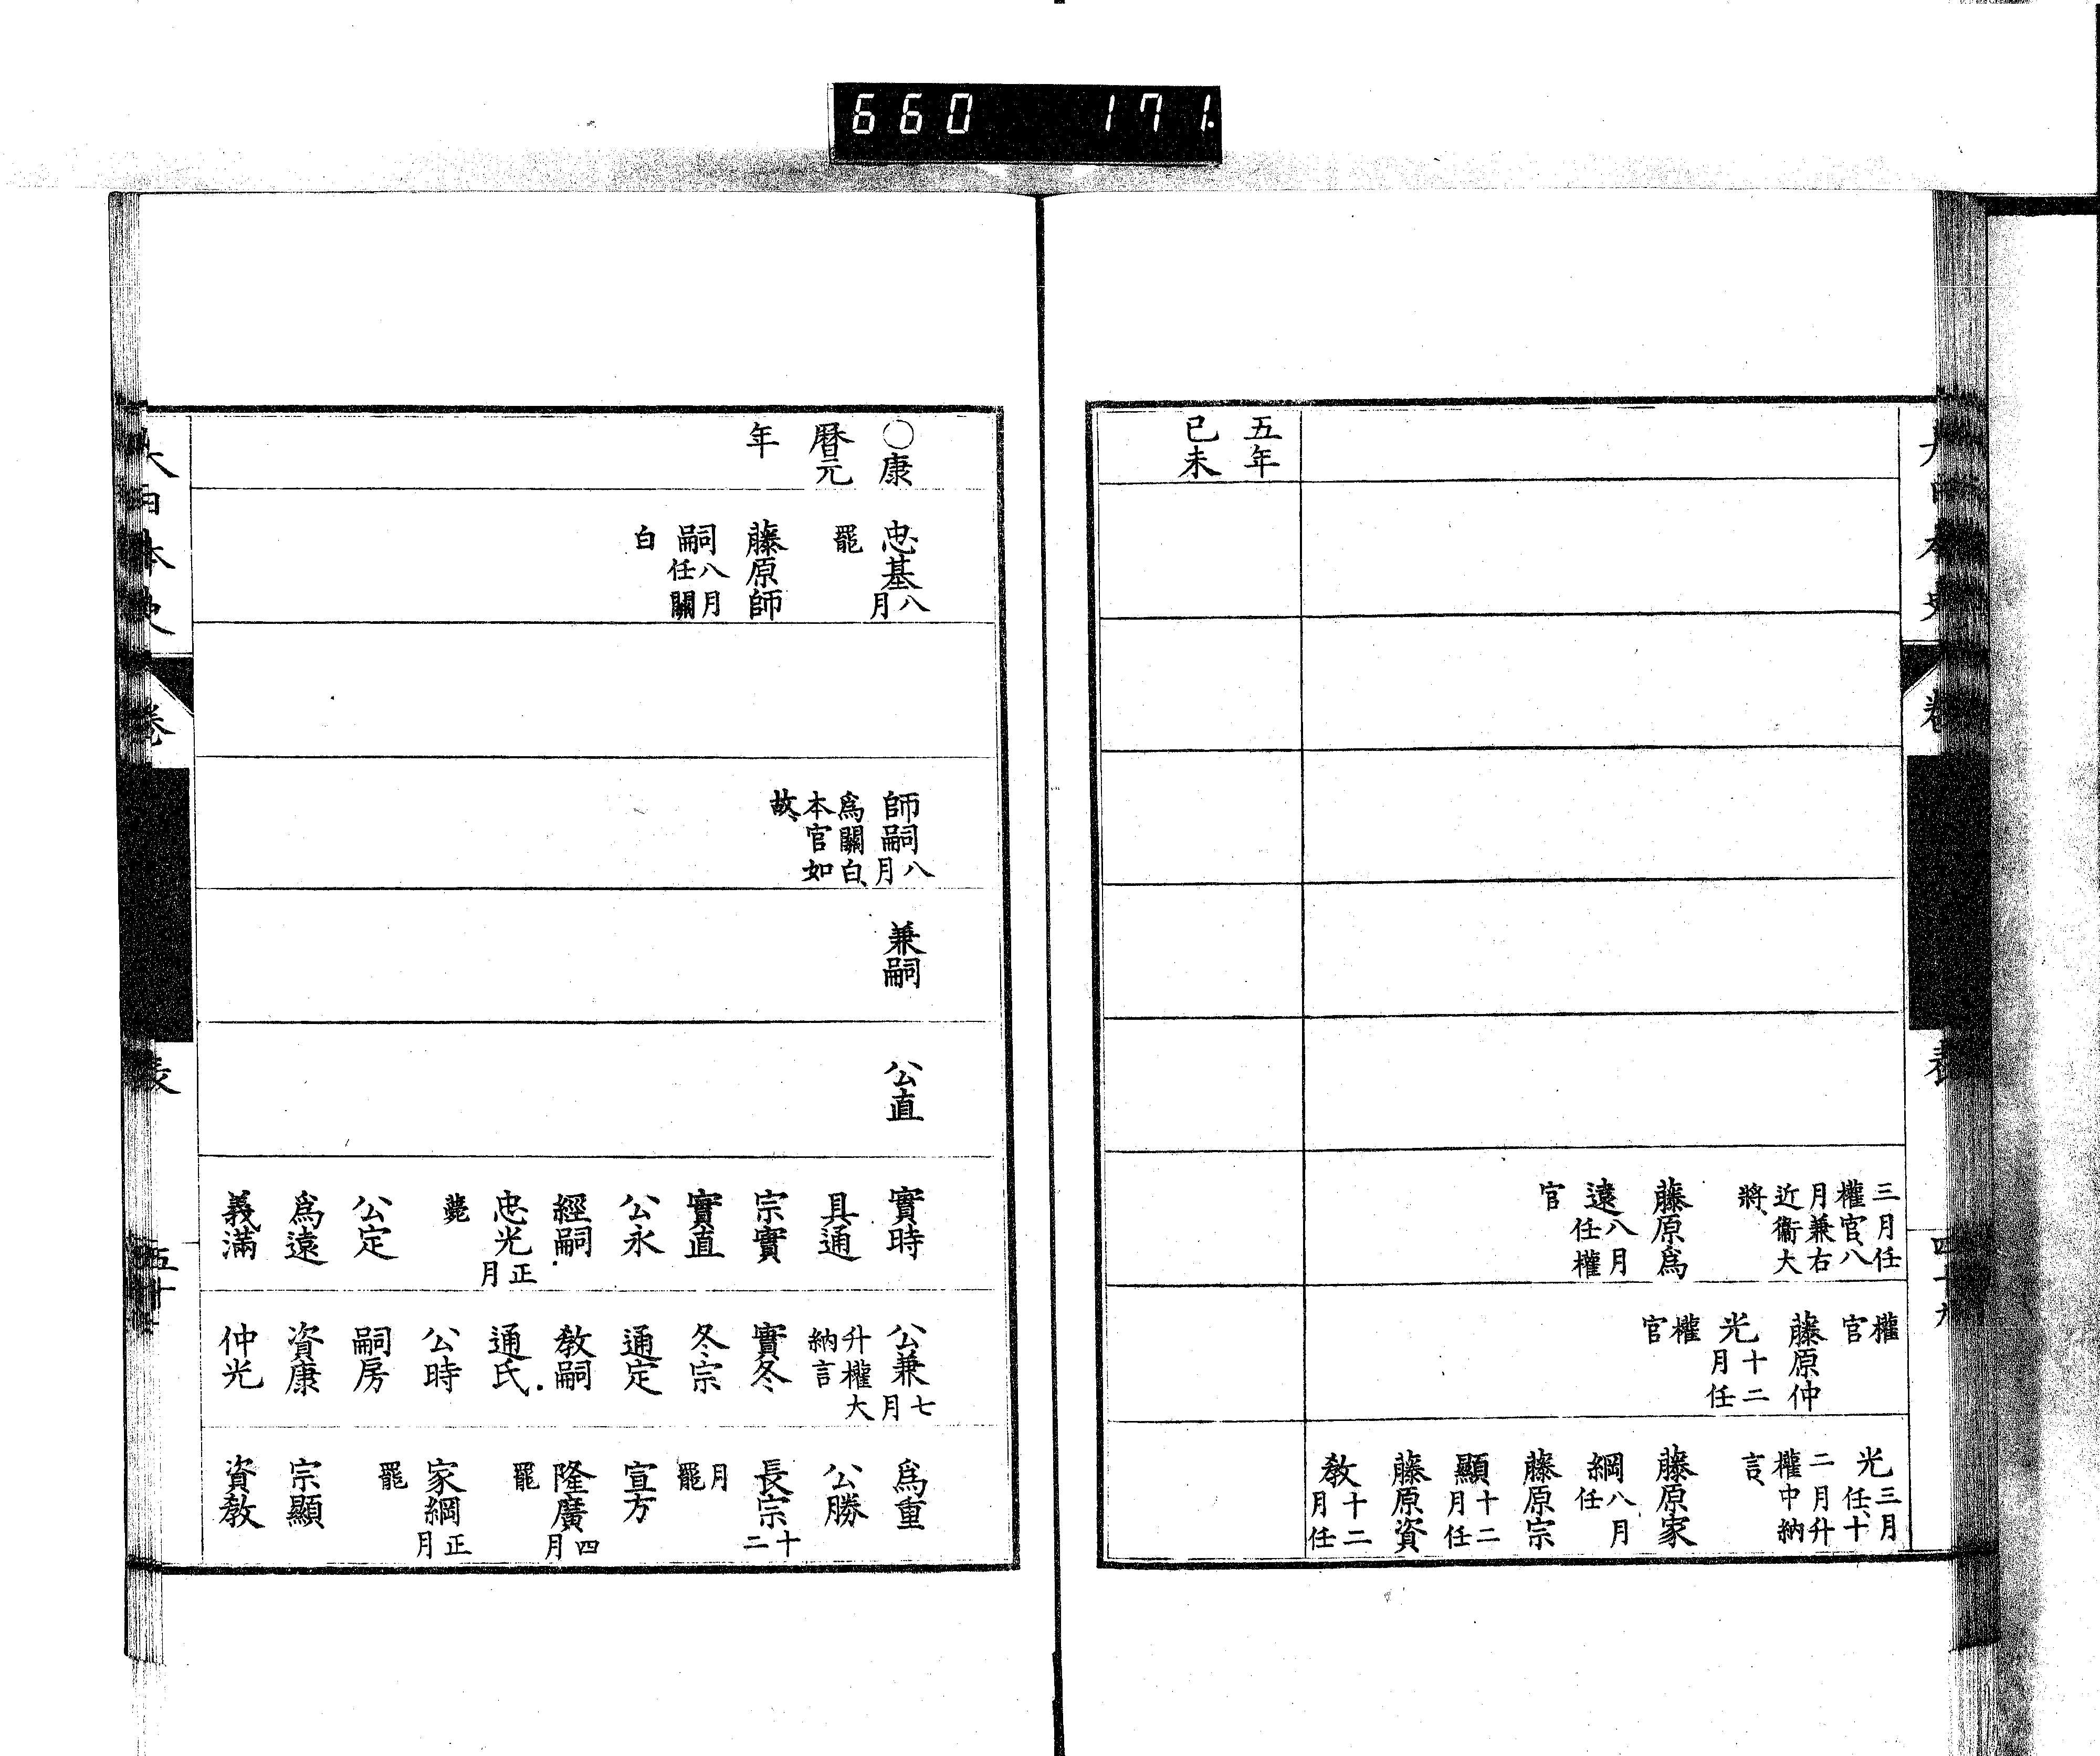 660 171.
三月任
權官、八
月兼右
近衞大
將、
藤原爲
遠八月
任權
官
權
官
藤原仲
光十二
月任
權
官
光三月
任、十
二月升
權中納
言、
藤原家
綱八月
任
藤原宗
顯十二
月任
藤原資
教十二
月任
五年
己未
○康
暦元
年
忠基八
月
罷
藤原師
嗣八月
任關
白
師嗣八
月
爲關白、
本官如
故、
兼嗣
公直
實時
具通
宗實
實直
公永
經嗣
忠光正
月
薨
公定
爲遠
義滿
公兼七
月
升權大
納言
實冬
冬宗
通定
教嗣
通氏
公時
嗣房
資康
仲光
爲重
公勝
長宗十
二
月
罷
宣方
隆廣四
月
罷
家綱正
月
罷
宗顯
資教
大日本史
卷
表
五十